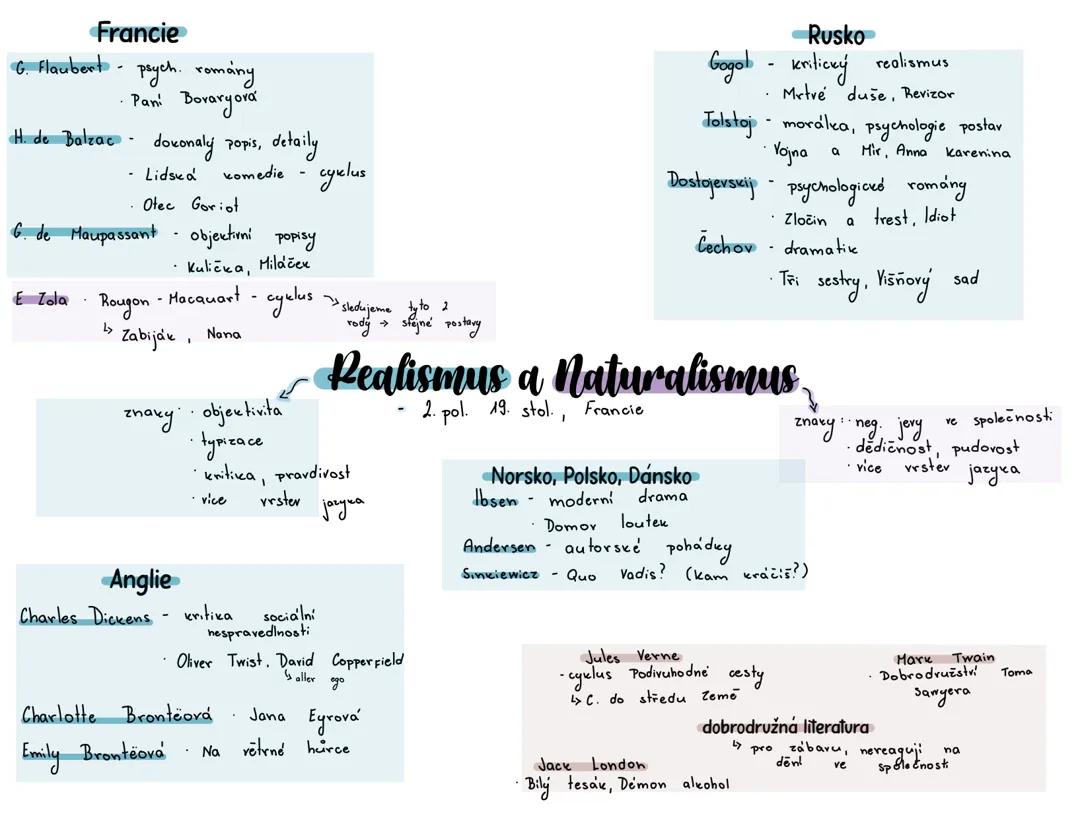 Francie
G. Flaubert - psych. romány
· Paní Bovaryová
H. de Balzac - dokonalý popis, detaily
- Lidská komedie - cyklus
· Otec Goriot
G. de Maupassant - objektivní popisy
· Kulička, Miláček
E Zola · Rougon - Macquart - cyklus → sledujeme tyto 2
rody → stejné postavy
↳ Zabiják, Nana
Rusko
Gogol - kritický realismus
· Mrtvé duše, Revizor
Tolstoj - morálka, psychologie postav
· Vojna a Mír, Anna Karenina
Dostojevskij - psychologické romány
· Zločin a trest, Idiot
Čechov - dramatik
· Tři sestry, Višňový sad
Realismus a Naturalismus
- 2. pol. 19. stol., Francie
znaky: · objektivita
· typizace
· kritika, pravdivost
· více vrstev jazyka
znaky: · neg. jevy ve společnosti
· dědičnost, pudovost
· více vrstev jazyka
Norsko, Polsko, Dánsko
Ibsen - moderní drama
· Domov loutek
Andersen - autorské pohádky
Sinkiewicz - Quo Vadis? (kam kráčíš?)
Anglie
Charles Dickens - kritika sociální
nespravedlnosti
· Oliver Twist, David Copperfield
↳ alter ego
Charlotte Brontëová · Jana Eyrová
Emily Brontëová · Na větrné hůrce
Jules Verne
- cyklus Podivuhodné cesty
↳ C. do středu Země
Mark Twain
· Dobrodružství Toma
Sawyera
dobrodružná literatura
↳ pro zábavu, nereagují na
dění ve společnosti
Jack London
· Bílý tesák, Démon alkohol